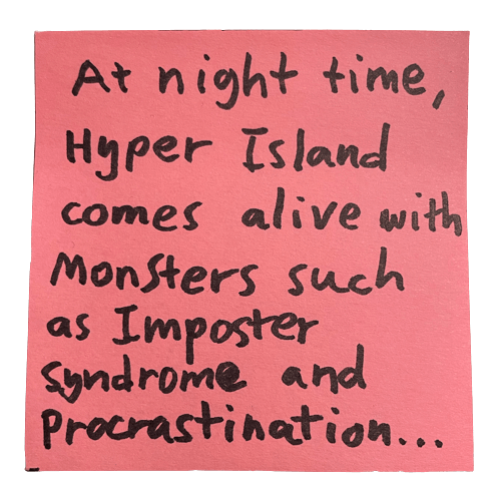 At night time,
Hyper Island
comes alive with
Monsters such
as Imposter
syndrome and
Procrastination...